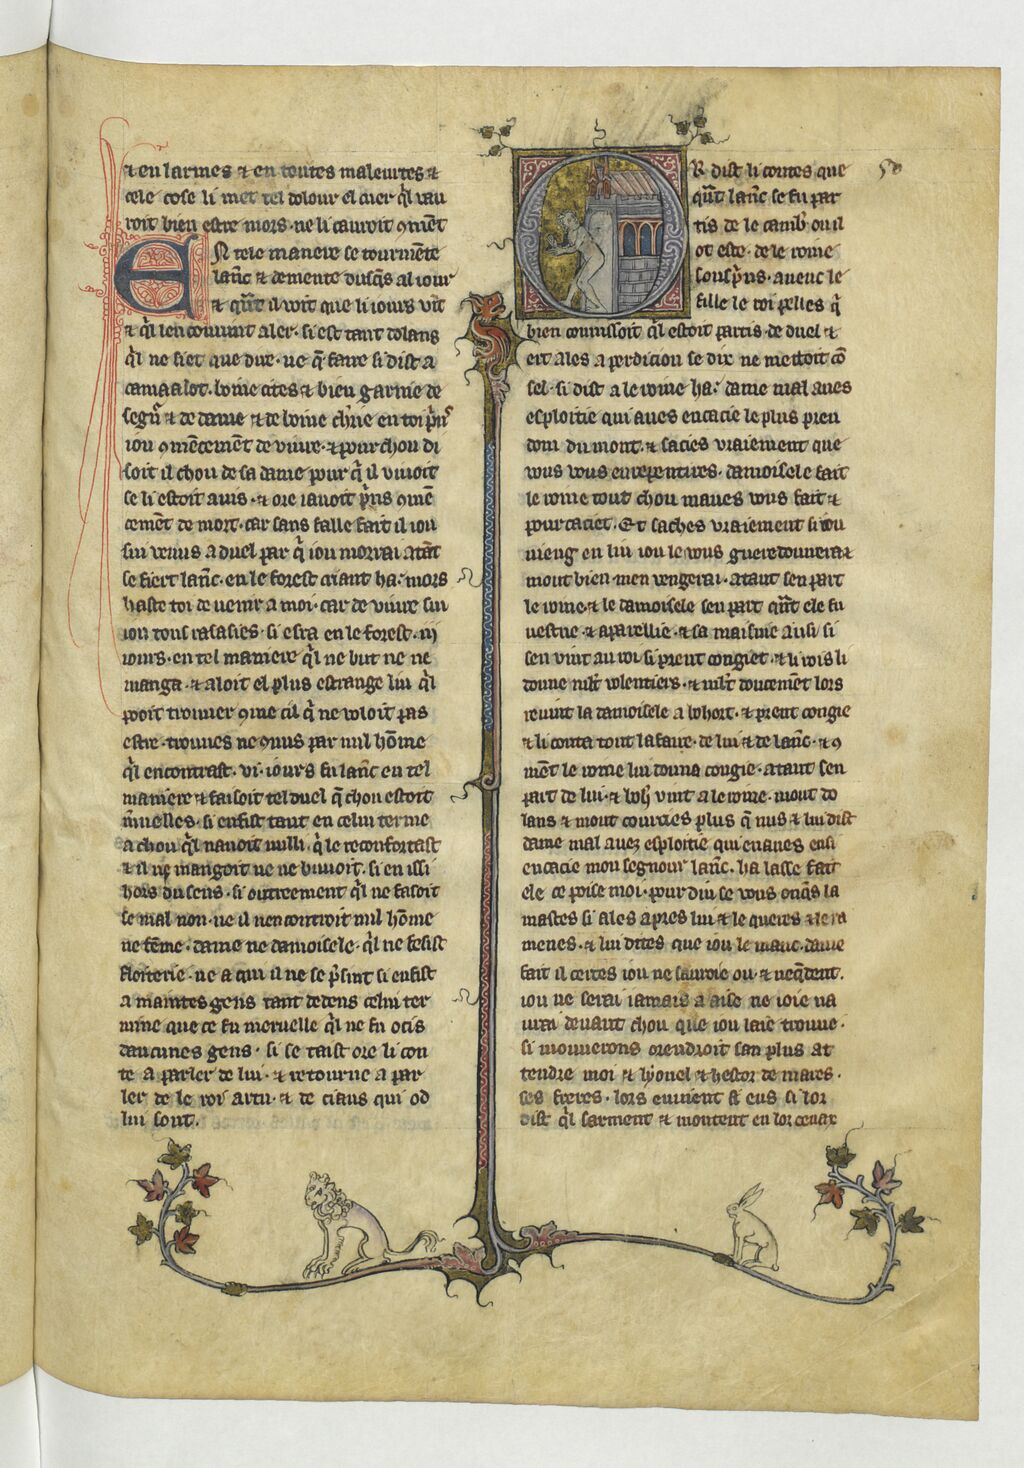 & en larmes & en toutes maleurtes &
cele cose li met tel dolour el cuer q̄l vau
roit bien estre mors · ne li cauroit ꝯment
EN tele maniere se tourmēte
lanc̄ & demente dusq̄s al iour
& q̄nt il voit que li iours vīt
& q̄l len couuint aler · si est tant dolans
q̄l ne siet que dire · ne q̄ faire si dist a
camaalot · boine cites & bien garnie de
segn̄ & de dame & de boine
iou ꝯmēcemēt de viure · & pour chou di
soit il chou de sa dame pour q̄ il viuoit
se li estoit auis · & ore rauoit p̄ns ꝯmē
cemēt de mort · car sans falle fait il iou
sui venus a duel par q̄ iou morrai atāt
se fiert lanc̄ · en le forest criant ha · mors
haste toi de uenir a moi · car de viure sui
iou tous rasasies · si erra en le forest · iij
iours · en tel maniere q̄l ne but ne ne
manga · & aloit el plus estrange liu q̄l
pooit trouuer ꝯme cil q̄ ne voloit pas
estre · trouues ne ꝯnus par nul hōme
q̄l encontrast · vi · iours fu lanc̄ en tel
maniere & faisoit tel duel q̄ chou estoit
m̄uelles · si enfist tant en celui terme
a chou q̄l nauoit nulli · q̄ le reconfortast
& il ne mangoit ne ne buuoit · si en issi
hors du sens · si outreement q̄l ne faisoit
se mal non · ne il nencontroit nul hōme
ne fēme · dame ne damoisele · q̄l ne fesist
· ne a qui il ne se p̄sint si enfist
a maintes gens tant dedens celui ter
mine que ce fu meruelle q̄l ne fu ocis
daucunes gens · si se taist ore li con
te a parler de lui · & retourne a par
ler de le roi artu · & de ciaus qui od
lui sont ·
50
OR dist li contes que
q̄nt lanc̄ se fu par
tis de le camb̄ ou il
ot este · de le roine
sousp̄ns · auenc le
fille le roi pelles q̄
bien connissoit q̄l estoit partis de duel &
ert ales a perdicion se dix ne metoit cō
sel · si dist a le roine ha · dame mal aues
esploitie qui aues encacie le plus preu
dom du mont · & sacies vraiement que
vous vous en repentires · damoisele fait
le roine tout chou maues vous fait &
pourcaciet · Et saches vraiement si iou
vieng en liu iou le vous guerredonnerai
mout bien men vengerai · atant sen part
le roine · & le damoisele sen part q̄nt ele fu
vestue · & aparellie · & sa maisnie ausi si
sen vint au roi si prent congiet · & li rois li
donne ml̄t volentiers · & ml̄t doucemēt lors
reuint la damoisele a bohort · & prent congie
& li conta tout lafaire · de lui & de lanc̄ · & ꝯ
mēt le roine lui douna congie · atant sen
part de lui · & boh̄ vint a le roine · mout do
lans & mout courcies plus q̄ nus & lui dist
dame mal auez esploitie qui en aues ensi
encacie mon segnour lanc̄ · ha lasse fait
ele ce poise moi · pour diu se vous onq̄s la
mastes si ales apres lui & le queres &
menes · & lui dites que iou le manc · dame
fait il certes iou ne sauroie ou · & neq̄dent ·
iou ne serai iamais a aise ne ioie na
urai deuant chou que iou laie trouue ·
si mouuerons orendroit san plus at
tendre moi & lyonel & hestor de mares ·
ses freres · lors euinent a eus si lor
dist q̄l sarment & montent en lor ceuax